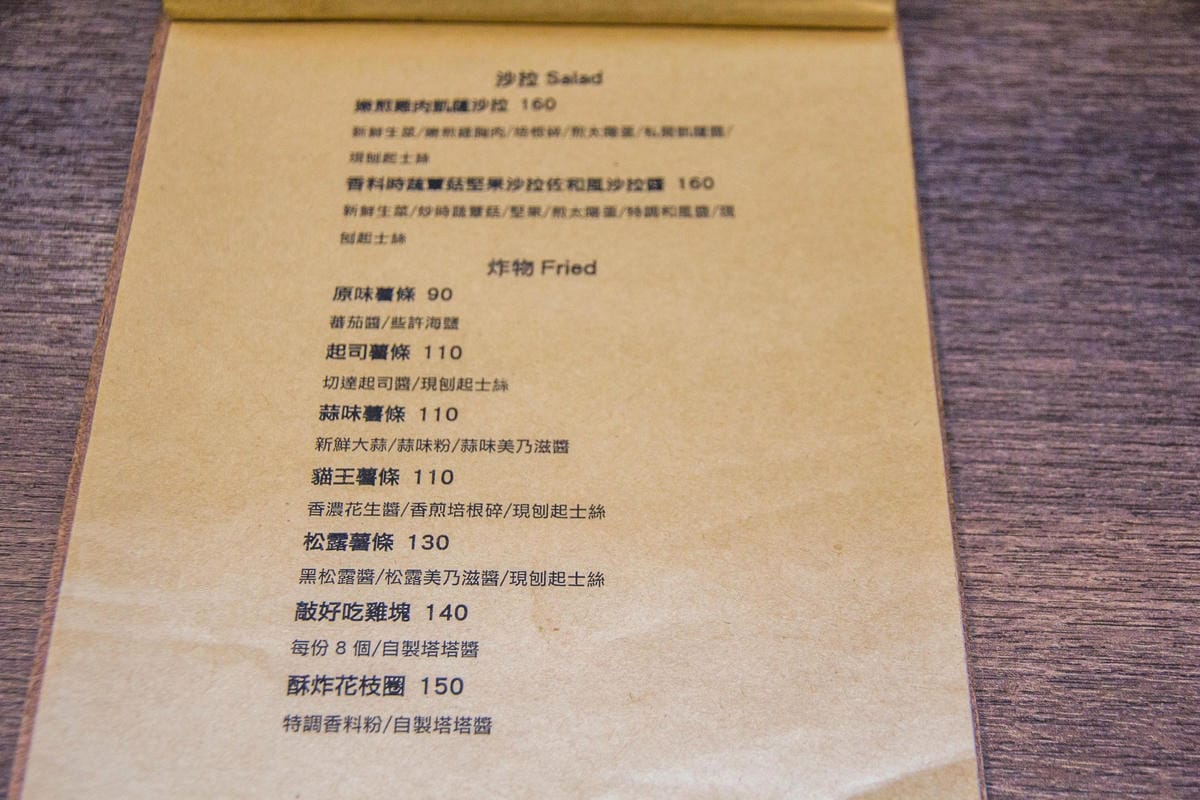 沙拉 Salad
嫩煎雞肉凱薩沙拉 160
新鮮生菜/嫩煎雞胸肉/培根碎/煎太陽蛋/私房凱薩醬/
現刨起士絲
香料時蔬蕈菇堅果沙拉佐和風沙拉醬 160
新鮮生菜/炒時蔬蕈菇/堅果/煎太陽蛋/特調和風醬/現
刨起士絲
炸物 Fried
原味薯條 90
蕃茄醬/些許海鹽
起司薯條 110
切達起司醬/現刨起士絲
蒜味薯條 110
新鮮大蒜/蒜味粉/蒜味美乃滋醬
貓王薯條 110
香濃花生醬/香煎培根碎/現刨起士絲
松露薯條 130
黑松露醬/松露美乃滋醬/現刨起士絲
敲好吃雞塊 140
每份 8 個/自製塔塔醬
酥炸花枝圈 150
特調香料粉/自製塔塔醬